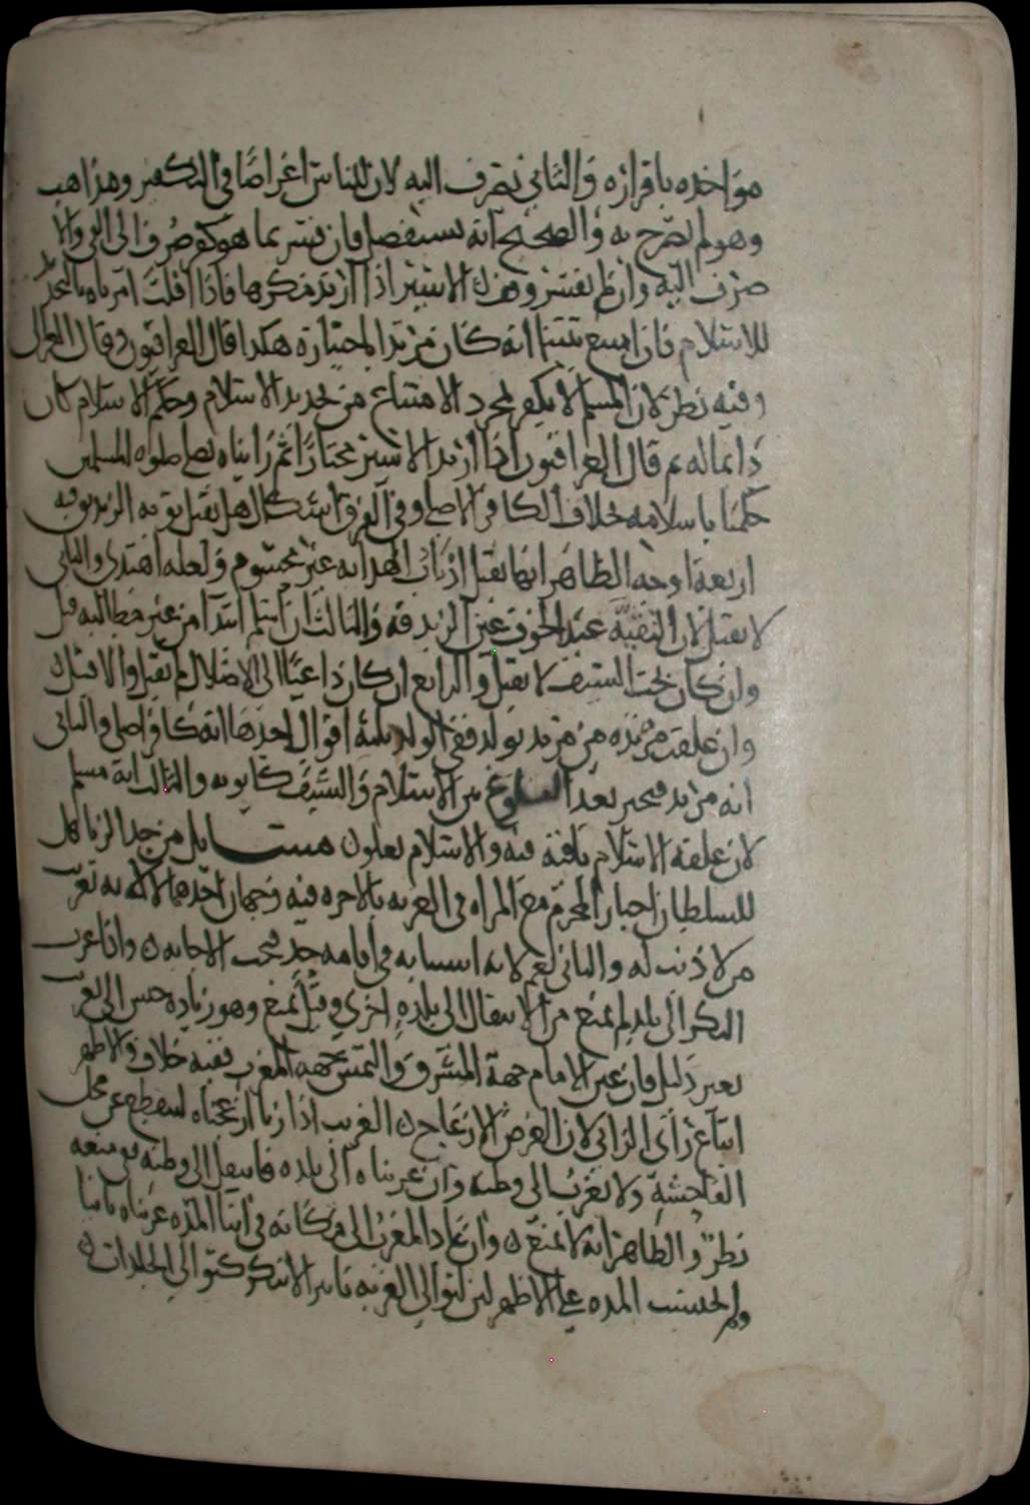 مواخذه باقراره والثاني يصرف اليه لان للناس اغراضا في التكفير ومذاهب
وهو لم يصرح به والصحيح انه يستفصل فان فسر بما هو كفر صرف الى الفي والا
صرف اليه وان لم يفسر وقف الاسير اذا ارتد مكرها فاذا افلت امرناه بالتجديد
للاسلام فان امتنع تبينا انه كان مرتدا لمختاره هكذا قال العراقيون وقال الغزالي
وفيه نظر لان المسلم لا يكفر بمجرد الامتناع من تجديد الاسلام وحكم الاسلام كان
دايما له ثم قال العراقيون اذا ارتد الاسير مختارا ثم راىناه يصلي صلوه المسلمين
حكمنا باسلامه بخلاف الكافر الاصلي وفي الفرق اشكال هل يقبل توبه الزنديق فيه
اربعة اوجه الظاهر انها تقبل اذ باب الهدايه غير محسوم ولعله اهتدى والثاني
لا يقبل لان التقيه عند الخوف عين الزندقه والثالث ان اسلم ابتدا من غير مطالبه قبل
وان كان تحت السيف لا يقبل والرابع ان كان داعيا الى الاضلال لم يقبل والا قبل
وان علقت مرتده من مرتد بولد ففي الولد ثلثة اقوال احدها انه كافر اصلي والثاني
انه مرتد فيجبر بعد البلوغ بين الاسلام والسيف كابويه والثالث انه مسلم
لان علقه الاسلام باقية فيه والاسلام يعلو مسايل من حد الزنا هل
للسلطان اجبار المحرم مع المراه في الغربه بالاجره فيه وجهان احدهما لا لانه تغريب
من لا ذنب له والثاني نعم لانه استنابه في اقامه حد فيجب الاجابه واذا غرب
البكر الى بلد لم يمنع من الانتقال الى بلده اخرى وقيل يمنع وهو زياده حبس الى التغريب
بغير دليل فان عين الامام جهة المشرق والتمس جهه المغرب ففيه خلاف والاظهر
اتباع راى الزاني لان الغرض الازعاج الغريب اذا زنا ازعجناه لينقطع عن محل
الفاحشة ولا يغرب الى وطنه وان غربناه الى بلده فانتقل الى وطنه ففي منعه
نظر والظاهر انه لا يمنع وان عاد المغرب الى مكانه في اثنا المده غربناه ثانيا
ولم تحتسب المده على الاظهر لان لتوالي الغربه تاثيرا لا ينكر كتوالي الجلدات